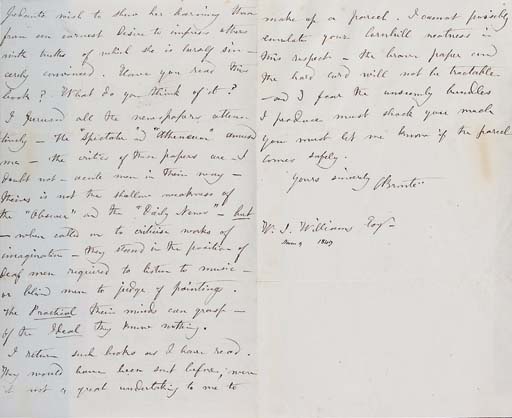 pedantic wish to shew her learning than
from an earnest desire to impress others
with truths of which she is herself sin-
cerely convinced. Have you read this
book? What do you think of it?
I perused all the newspapers atten-
tively — the "Spectator" and "Athenæum" amused
me — the critics of these papers are — I
doubt not — acute men in their way —
theirs is not the shallow weakness of
the "Observer" and the "Daily News" — but
— when called on to criticise works of
imagination — they stand in the position of
deaf men required to listen to music —
or blind men to judge of painting.
The Practical their minds can grasp —
of the Ideal they know nothing.
I return such books as I have read.
They would have been sent before, were
it not a great undertaking to me to
make up a parcel. I cannot possibly
emulate your Cornhill neatness in
this respect — the brown paper and
the hard cord will not be tractable
— and I fear the unseemly bundles
I produce must shock you much
you must let me know if the parcel
comes safely.
Yours sincerely CBrontë
W. S. Williams Esqr
1849